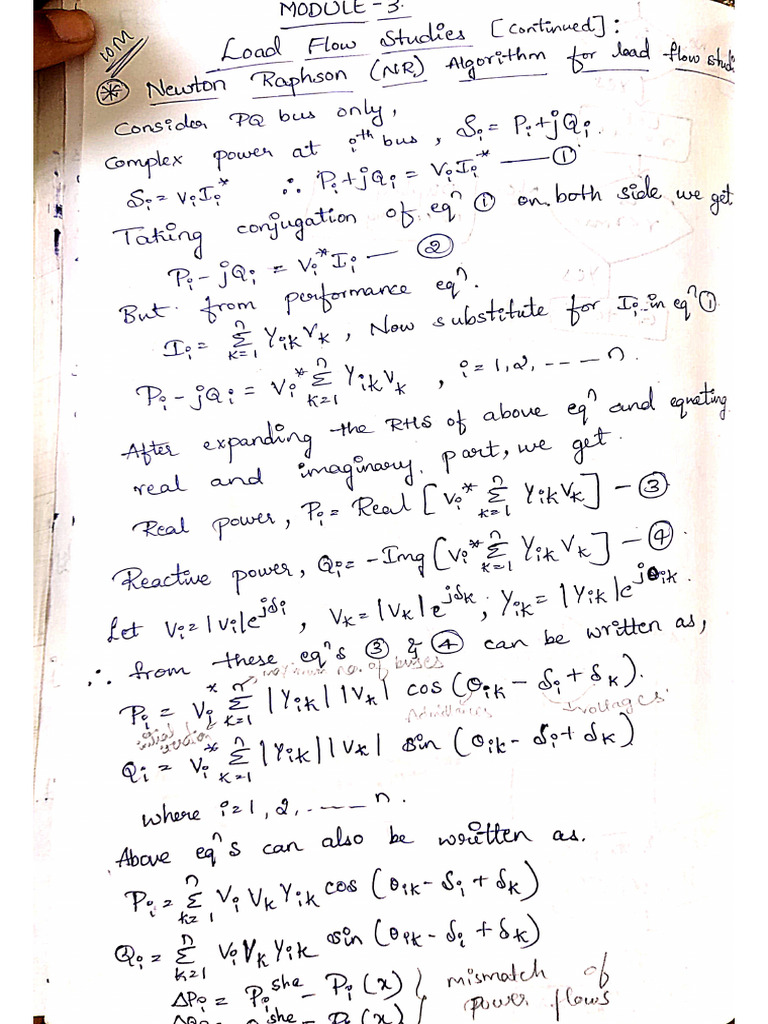 MODULE-3.
10M
Load Flow Studies [continued]:
* Newton Raphson (NR) Algorithm for load flow studi
Consider PQ bus only,
Complex power at iᵗʰ bus, Si = Pi+jQi.
Si = ViIi* ∴ Pi+jQi = ViIi* — ①
Taking conjugation of eqⁿ ① on both side we get
Pi - jQi = Vi*Ii — ②
But from performance eqⁿ.
Ii = Σ(k=1 to n) Yik Vk, Now substitute for Ii in eqⁿ ①
Pi - jQi = Vi* Σ(k=1 to n) YikVk, i = 1, 2, ----- n.
After expanding the RHS of above eqⁿ and equating
real and imaginary part, we get.
Real power, Pi = Real [Vi* Σ(k=1 to n) YikVk] — ③
Reactive power, Qi = -Img [Vi* Σ(k=1 to n) Yik Vk] — ④.
Let Vi = |Vi|e^jδi, Vk = |Vk|e^jδk, Yik = |Yik|e^jθik.
∴ from these eqⁿs ③ & ④ can be written as,
maximum no. of buses
Pi = Vi* Σ(k=1 to n) |Yik| |Vk| cos (θik - δi + δk).
Admittances voltages
Qi = Vi* Σ(k=1 to n) |Yik| |Vk| sin (θik - δi + δk)
where i = 1, 2, ----- n.
Above eqⁿs can also be written as.
Pi = Σ(k=1 to n) Vi Vk Yik cos (θik - δi + δk)
Qi = Σ(k=1 to n) Vi Vk Yik sin (θik - δi + δk)
ΔPi = Pi^she - Pi(x) } mismatch of
power flows